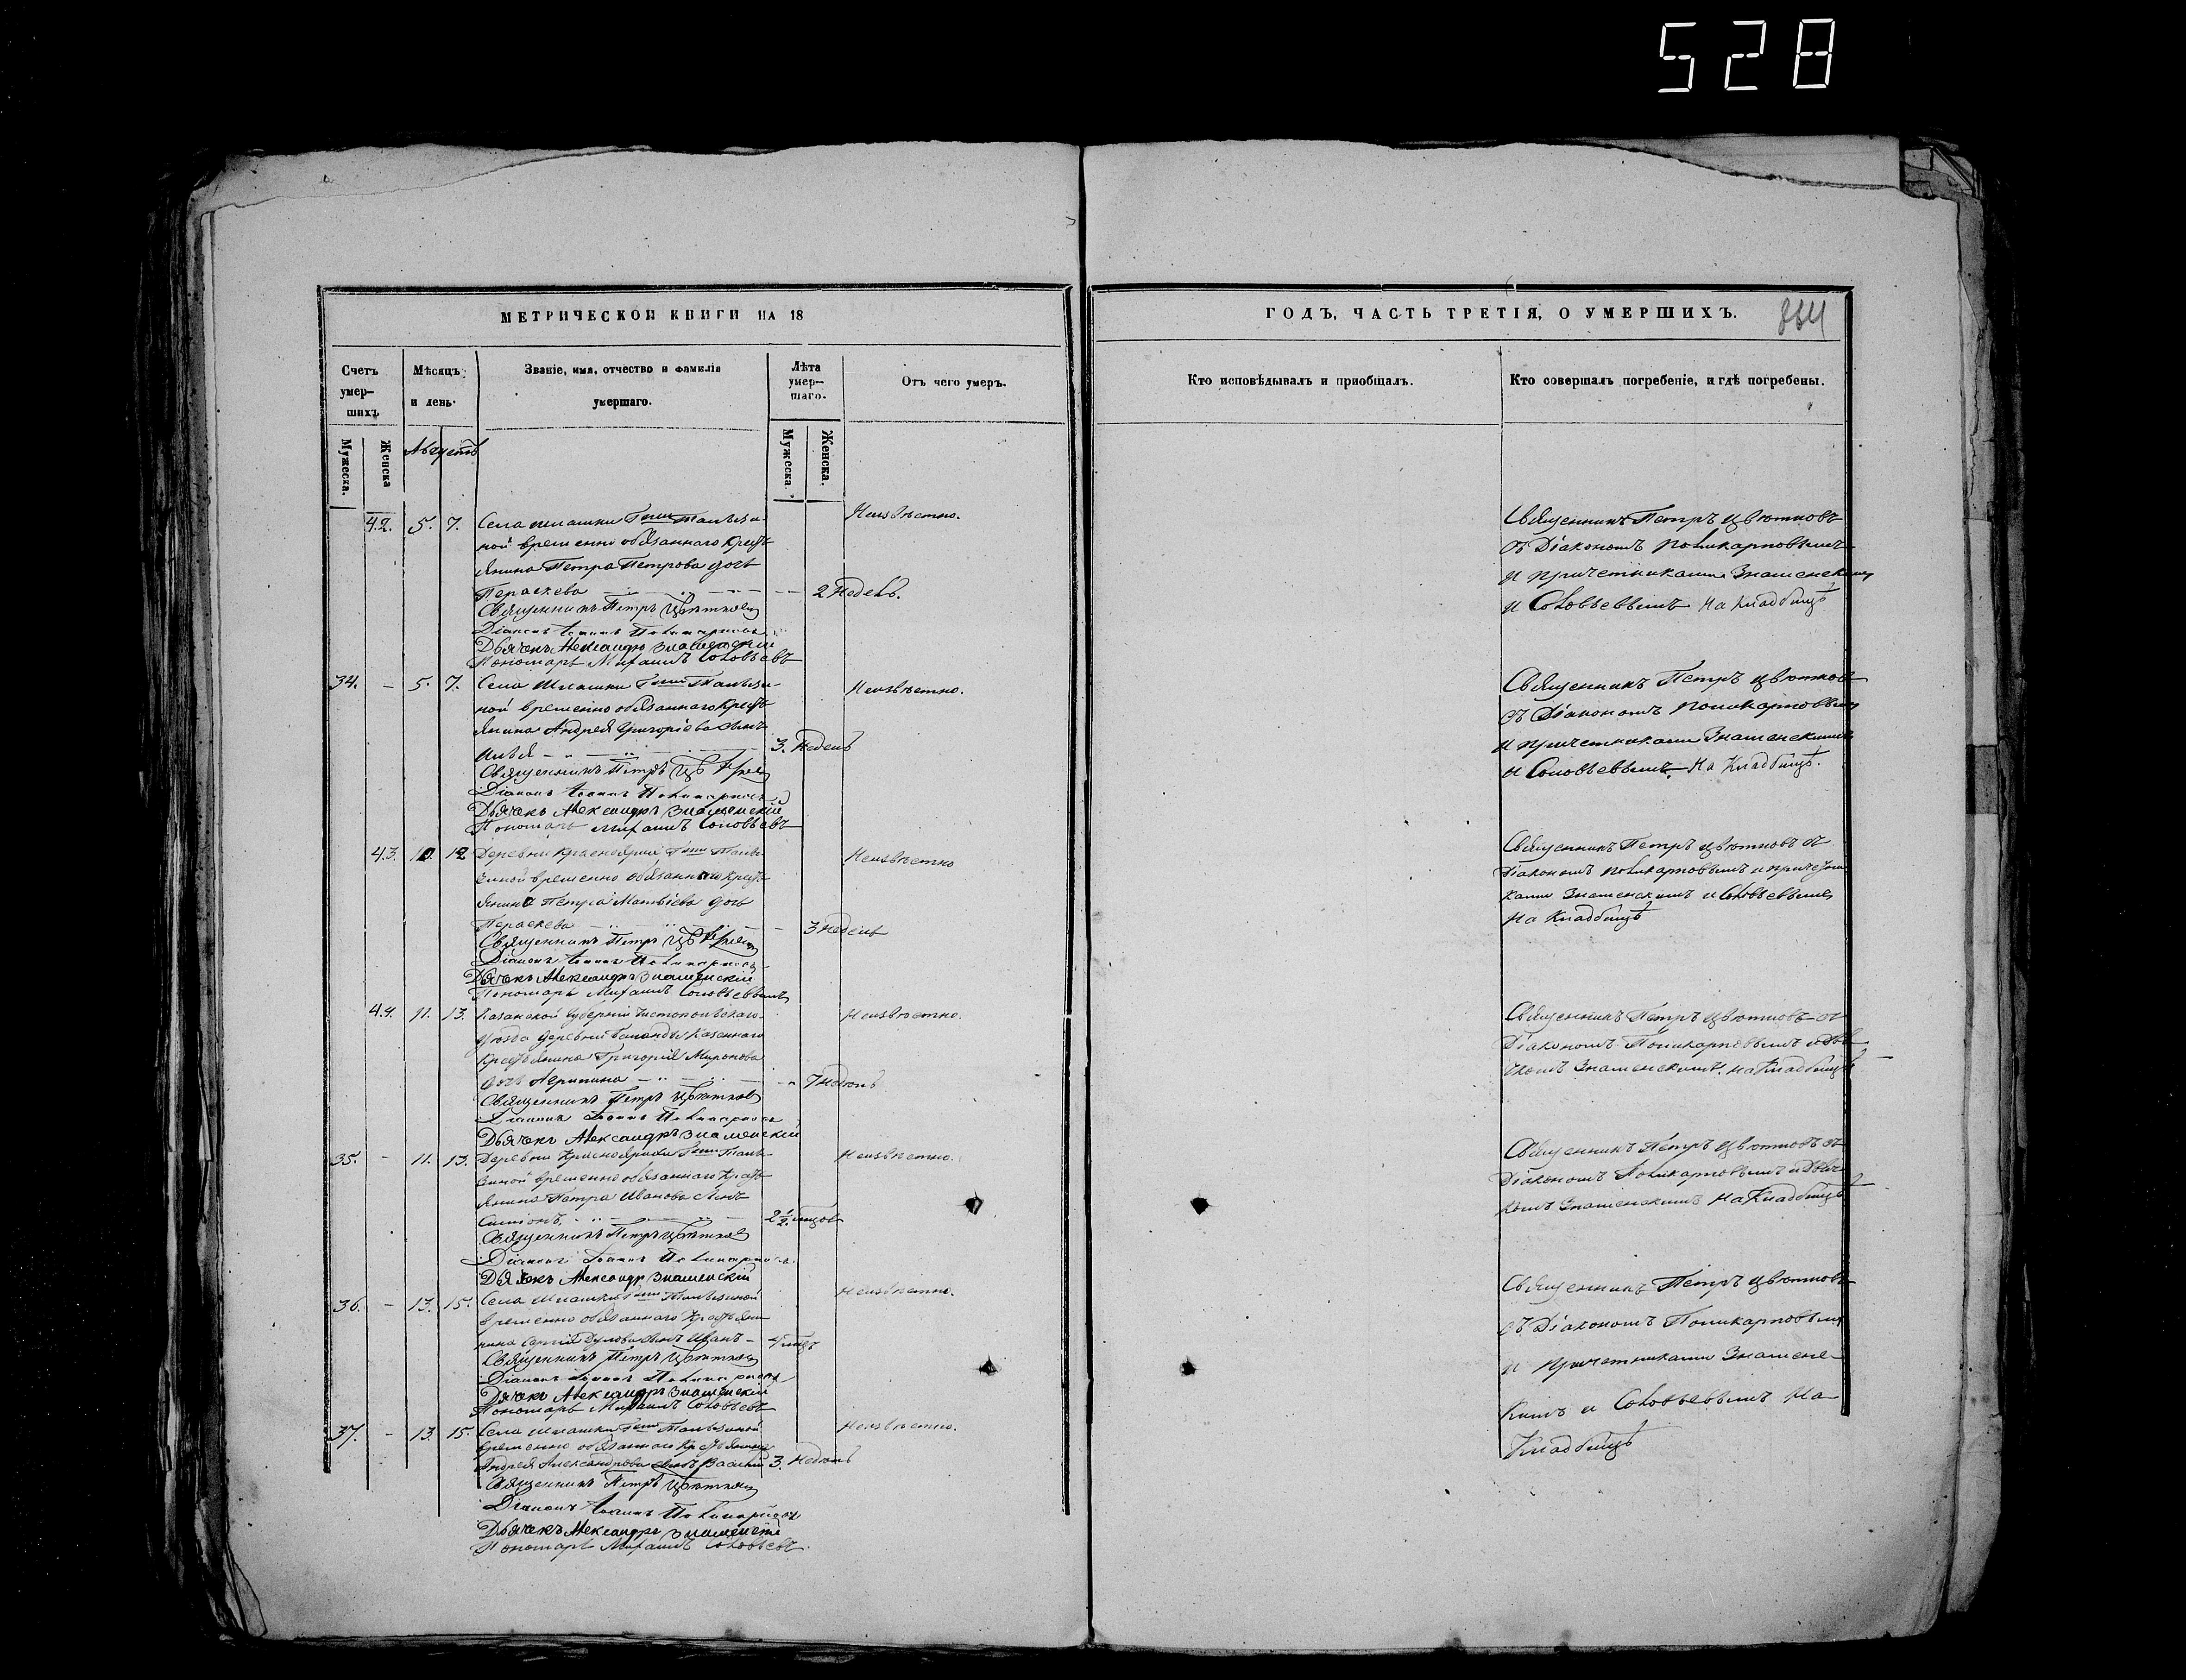 528
МЕТРИЧЕСКОЙ КНИГИ НА 18
Счетъ умер-шихъ
Мѣсяцъ и день.
Званіе, имя, отчество и фамилія умершаго.
Лѣта умер-шаго.
Отъ чего умеръ.
Мужеска.
Женска
Мужеска.
Женска.
Августъ
42. 5. 7. Села Шлашки Гжи
ной временно обязаннаго Кресть
янина Петра Петрова дочь
Параскева 2 Недель.
Неизвѣстно.
Священникъ Петръ Цвѣтковъ
Діаконъ Іоаннъ Поликарповъ
Дьячекъ Александръ Знаменскій
Пономарь Михаилъ Соловьевъ
34. - 5. 7. Села Шлашки Гжи
ной временно обязаннаго Кресть
янина Андрея Григоріева сынъ
Илья 3. Недель
Неизвѣстно.
Священникъ Петръ
Діаконъ Іоаннъ Поликарповъ
Дьячекъ Александръ Знаменскій
Пономарь Михаилъ Соловьевъ
43. 10. 12 Деревни Красноярки Гжи
временно обязаннаго Кресть
янина Петра Матвѣева дочь
Параскева 3 Недель
Неизвѣстно
Священникъ Петръ
Діаконъ Іоаннъ Поликарповъ
Дьячекъ Александръ Знаменскій
Пономарь Михаилъ Соловьевъ
44. 11. 13. Казанской Губерніи Чистопольскаго
уѣзда деревни Казеннаго
Крестьянина Григорія Миронова
дочь Агрипина 7 Недель
Неизвѣстно.
Священникъ Петръ Цвѣтковъ
Діаконъ Іоаннъ Поликарповъ
Дьячекъ Александръ Знаменскій
35. - 11. 13. Деревни Красноярки Гжи
временно обязаннаго Кресть
янина Петра Иванова сынъ
Симіонъ 2 1/2 мѣсяц
Неизвѣстно.
Священникъ Петръ Цвѣтковъ
Діаконъ Іоаннъ Поликарповъ
Дьячекъ Александръ Знаменскій
36. - 13. 15. Села Шлашки Гжи
временно обязаннаго Крестьян
нина Сергія сынъ Иванъ
Неизвѣстно.
Священникъ Петръ Цвѣтковъ
Діаконъ Іоаннъ Поликарповъ
Дьячекъ Александръ Знаменскій
Пономарь Михаилъ Соловьевъ
37. - 13. 15. Села Шлашки Гжи
временно обязаннаго Крестьянина
Андрея Александрова сынъ Василій 3. Недель
Неизвѣстно.
Священникъ Петръ Цвѣтковъ
Діаконъ Іоаннъ Поликарповъ
Дьячекъ Александръ Знаменскій
Пономарь Михаилъ Соловьевъ
ГОДЪ, ЧАСТЬ ТРЕТІЯ, О УМЕРШИХЪ.
Кто исповѣдывалъ и пріобщалъ.
Кто совершалъ погребеніе, и гдѣ погребены.
Священникъ Петръ Цвѣтковъ
съ Діакономъ Поликарповымъ
и причетниками Знаменскимъ
и Соловьевымъ На Кладбищѣ
Священникъ Петръ Цвѣтковъ
съ Діакономъ Поликарповымъ
и причетниками Знаменскимъ
и Соловьевымъ. На Кладбищѣ.
Священникъ Петръ Цвѣтковъ съ
Діакономъ Поликарповымъ и причетни
ками Знаменскимъ и Соловьевымъ
На Кладбищѣ
Священникъ Петръ Цвѣтковъ съ
Діакономъ Поликарповымъ и Дья
чкомъ Знаменскимъ. на Кладбищѣ
Священникъ Петръ Цвѣтковъ съ
Діакономъ Поликарповымъ и Дьяч
комъ Знаменскимъ На Кладбищѣ
Священникъ Петръ Цвѣтковъ
съ Діакономъ Поликарповымъ
и причетниками Знаменс
кимъ и Соловьевымъ На
Кладбищѣ